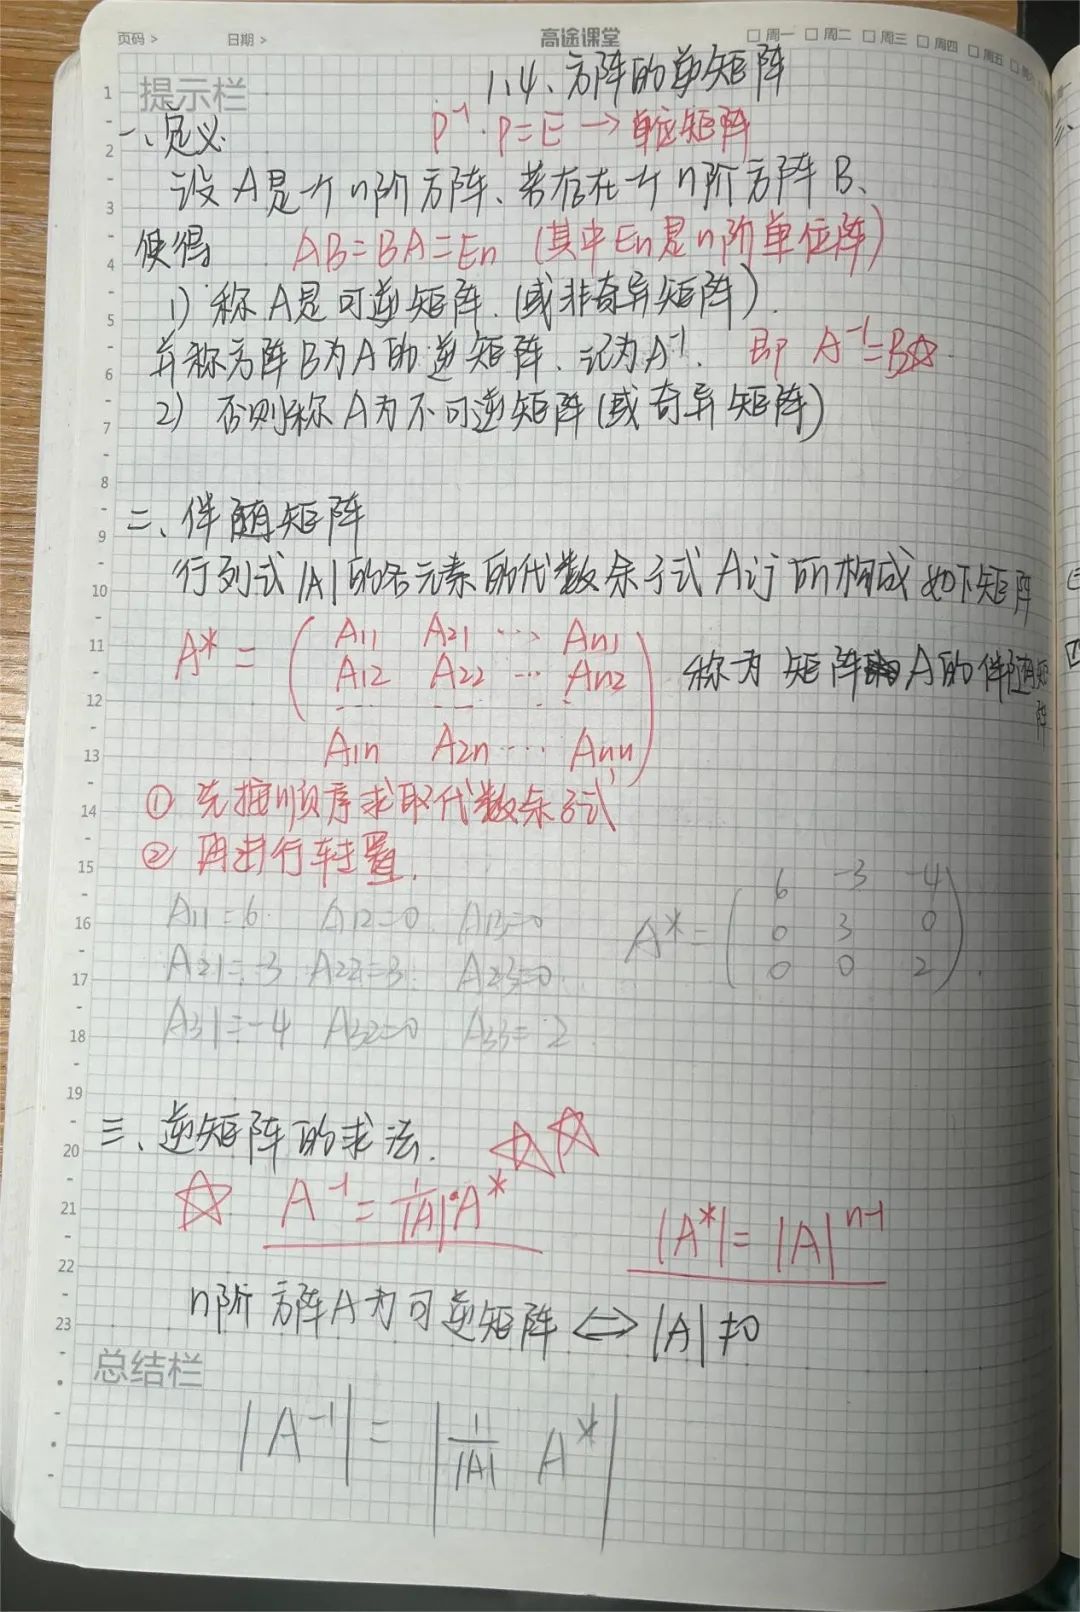 页码 > 日期 > 高途课堂 □ 周一 □ 周二 □ 周三 □ 周四 □ 周五 □
提示栏
1.4、方阵的逆矩阵
一、定义 P⁻¹·P=E → 单位矩阵
设A是一个n阶方阵、若存在一个n阶方阵B、
使得 AB=BA=En (其中En是n阶单位阵)
1) 称A是可逆矩阵.(或非奇异矩阵).
并称方阵B为A的逆矩阵、记为A⁻¹. 即 A⁻¹=B☆
2) 否则称A为不可逆矩阵(或奇异矩阵)
二、伴随矩阵
行列式|A|的各元素的代数余子式Aij所构成如下矩阵
A* = ( A11 A21 ⋯ An1
A12 A22 ⋯ An2
⋯ ⋯ ⋯
A1n A2n ⋯ Ann ) 称为矩阵A的伴随矩阵
① 先按顺序求取代数余子式
② 再进行转置.
A11=6. A12=0. A13=0
A21=-3 A22=3. A23=0.
A31=-4 A32=0 A33=2.
A*= ( 6 -3 -4
0 3 0
0 0 2 ).
三、逆矩阵的求法. ☆☆
☆ A⁻¹ = 1/|A|·A*
|A*| = |A|ⁿ⁻¹
n阶方阵A为可逆矩阵 ⟺ |A|≠0
总结栏
|A⁻¹| = |1/|A| A*|
1
2
3
4
5
6
7
8
9
10
11
12
13
14
15
16
17
18
19
20
21
22
23